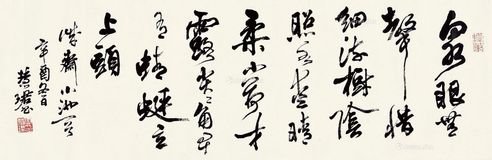 泉眼無
聲惜
細流樹陰
照水愛晴
柔小荷才
露尖尖角早
有蜻蜓立
上頭
誠齋小池
辛酉